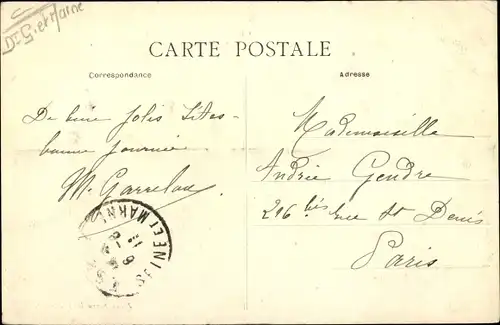 Dt S. et Marne
CARTE POSTALE
Correspondance
Adresse
De bien jolis sites
bonne journée
M. Garrelon
Mademoiselle
Andrée Gendre
216 bis rue St Denis
Paris
SEINE ET MARNE